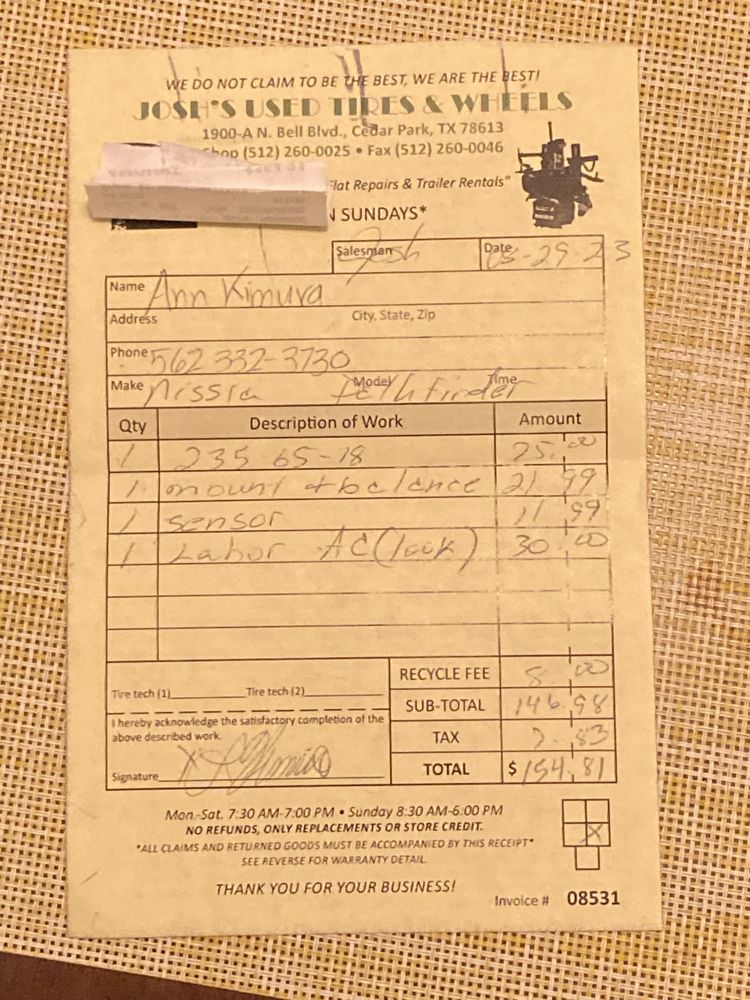 WE DO NOT CLAIM TO BE THE BEST, WE ARE THE BEST!
JOSH'S USED TIRES & WHEELS
1900-A N. Bell Blvd., Cedar Park, TX 78613
(512) 260-0025 • Fax (512) 260-0046
Flat Repairs & Trailer Rentals"
SUNDAYS*
Salesman Josh Date 05-29-23
Name Ann Kimura
Address City, State, Zip
Phone 562 332-3730
Make Nissia Model Pathfinder Time
Qty Description of Work Amount
1 235 65-18 75.00
1 mount + balance 21 99
1 sensor 11 99
1 Labor AC (look) 30.00
RECYCLE FEE 8 00
Tire tech (1) Tire tech (2)
SUB-TOTAL 146.98
I hereby acknowledge the satisfactory completion of the
above described work.
TAX 7.83
Signature X
TOTAL $ 154.81
Mon.-Sat. 7:30 AM-7:00 PM • Sunday 8:30 AM-6:00 PM
NO REFUNDS, ONLY REPLACEMENTS OR STORE CREDIT.
*ALL CLAIMS AND RETURNED GOODS MUST BE ACCOMPANIED BY THIS RECEIPT*
SEE REVERSE FOR WARRANTY DETAIL.
X
THANK YOU FOR YOUR BUSINESS!
Invoice # 08531